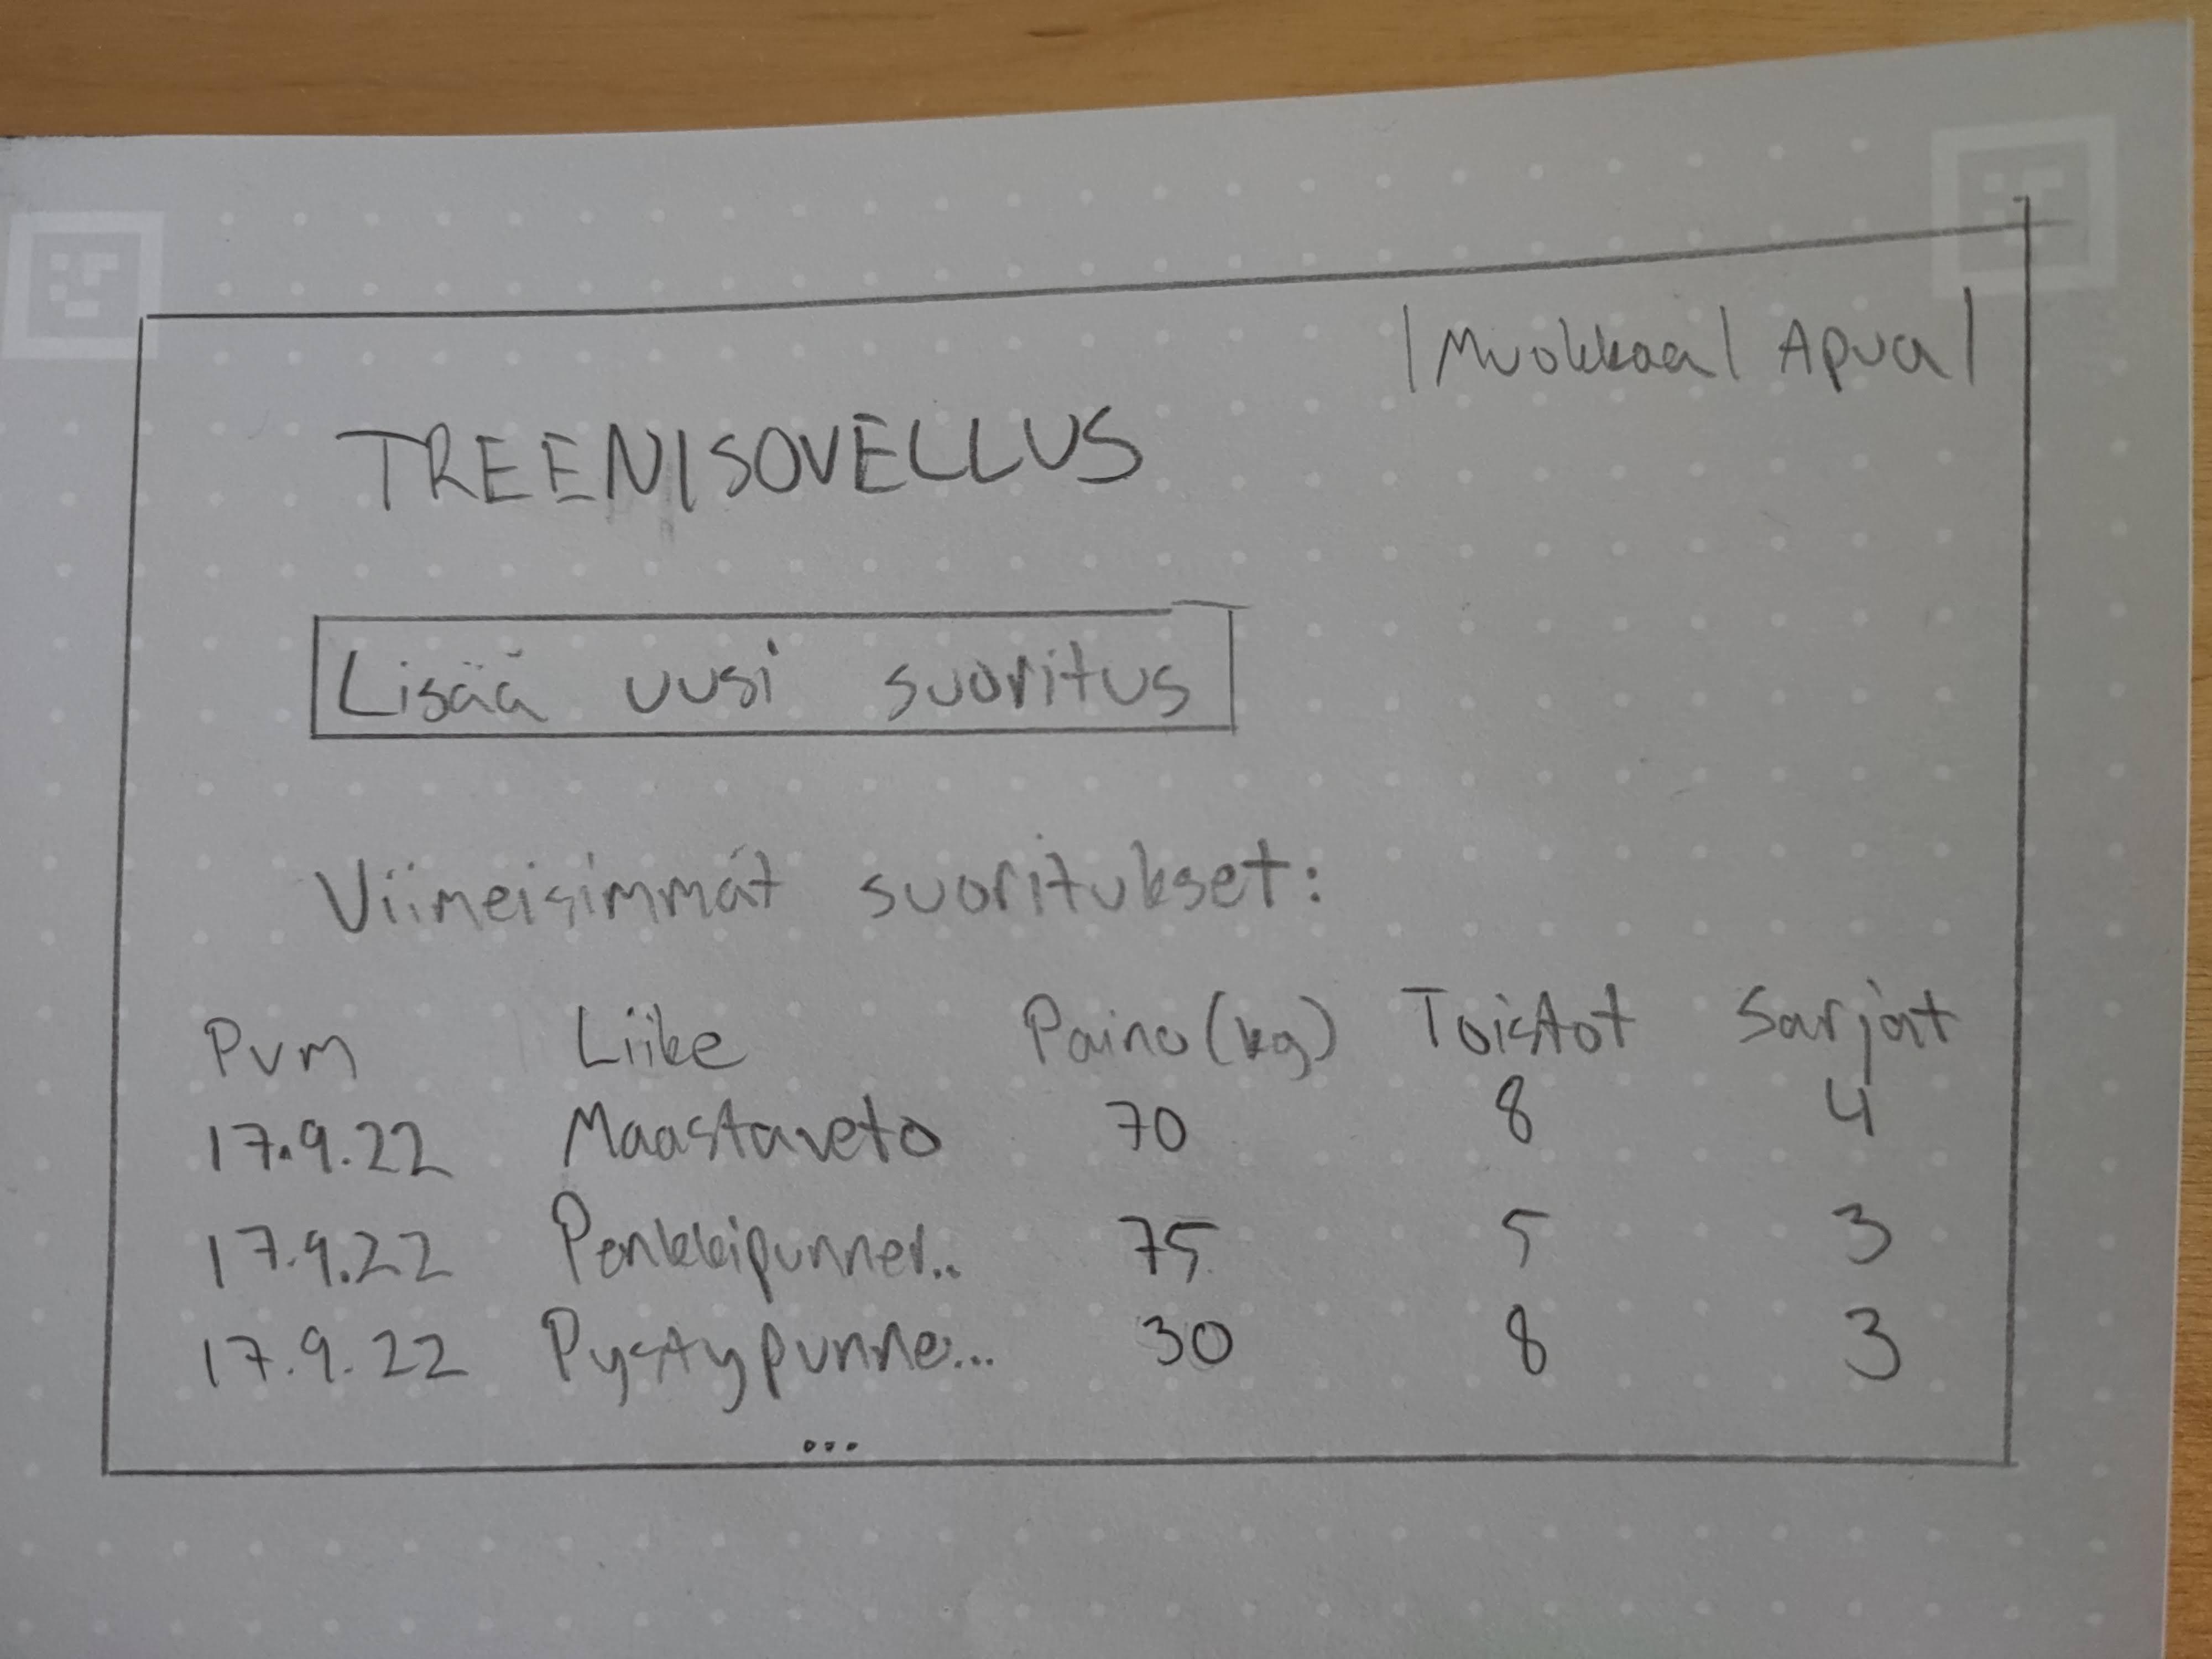 | Muokkaa | Apua |
TREENISOVELLUS
Lisää uusi suoritus
Viimeisimmät suoritukset:
Pvm Liike Paino (kg) Toistot Sarjat
17.9.22 Maastaveto 70 8 4
17.9.22 Penkkipunner.. 75 5 3
17.9.22 Pystypunne... 30 8 3
...